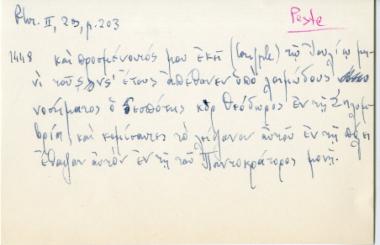 Chr. II, 29, p. 203
Peste
1448 καὶ προσμένοντός μου ἐκεῖ (Conple) τῷ Ἰουλίῳ μη-
νὶ τοῦ ςϡνς΄ ἔτους ἀπέθανεν ὑπὸ λοιμώδους
νοσήματος ὁ δεσπότης κὺρ Θεόδωρος ἐν τῇ Σηλυμ-
βρίᾳ, καὶ κομίσαντες τὸ λείψανον αὐτοῦ ἐν τῇ πόλει
ἔθαψαν αὐτὸν ἐν τῇ τοῦ Παντοκράτορος μονῇ.